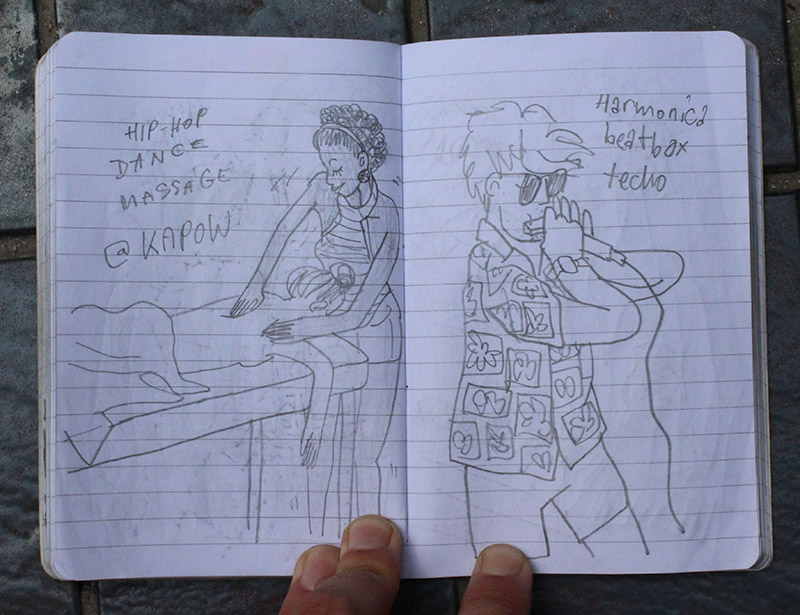 HIP-HOP
DANCE
MASSAGE
@ KAPOW
Harmonica
beatbox
techo